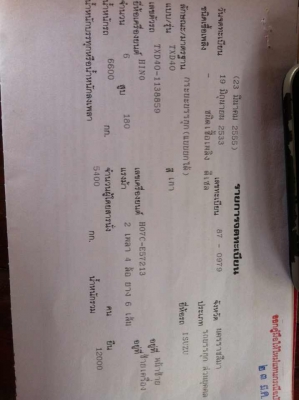 รายการจดทะเบียน
(23 มีนาคม 2555)
วันจดทะเบียน 19 มิถุนายน 2533 เลขทะเบียน 87 - 0979 จังหวัด นครราชสีมา
ชนิดเชื้อเพลิง - ชนิดเชื้อเพลิง ดีเซล ประเภท รถบรรทุก ส่วนบุคคล
ลักษณะ/มาตรฐาน กระบะบรรทุก(แบบยกได้) ยี่ห้อรถ ISUZU
แบบ/รุ่น TXD40 สี เทา
เลขตัวรถ TXD40-1138859 อยู่ที่
ยี่ห้อเครื่องยนต์ HINO เลขเครื่องยนต์ H07C-E57213 อยู่ที่
จำนวน 6 สูบ 180 แรงม้า 2 เพลา 4 ล้อ ยาง 6 เส้น
น้ำหนักรถ 6600 กก. จำนวนผู้โดยสารนั่ง คน ยืน
น้ำหนักบรรทุก 5400 กก. น้ำหนักรวม 12000